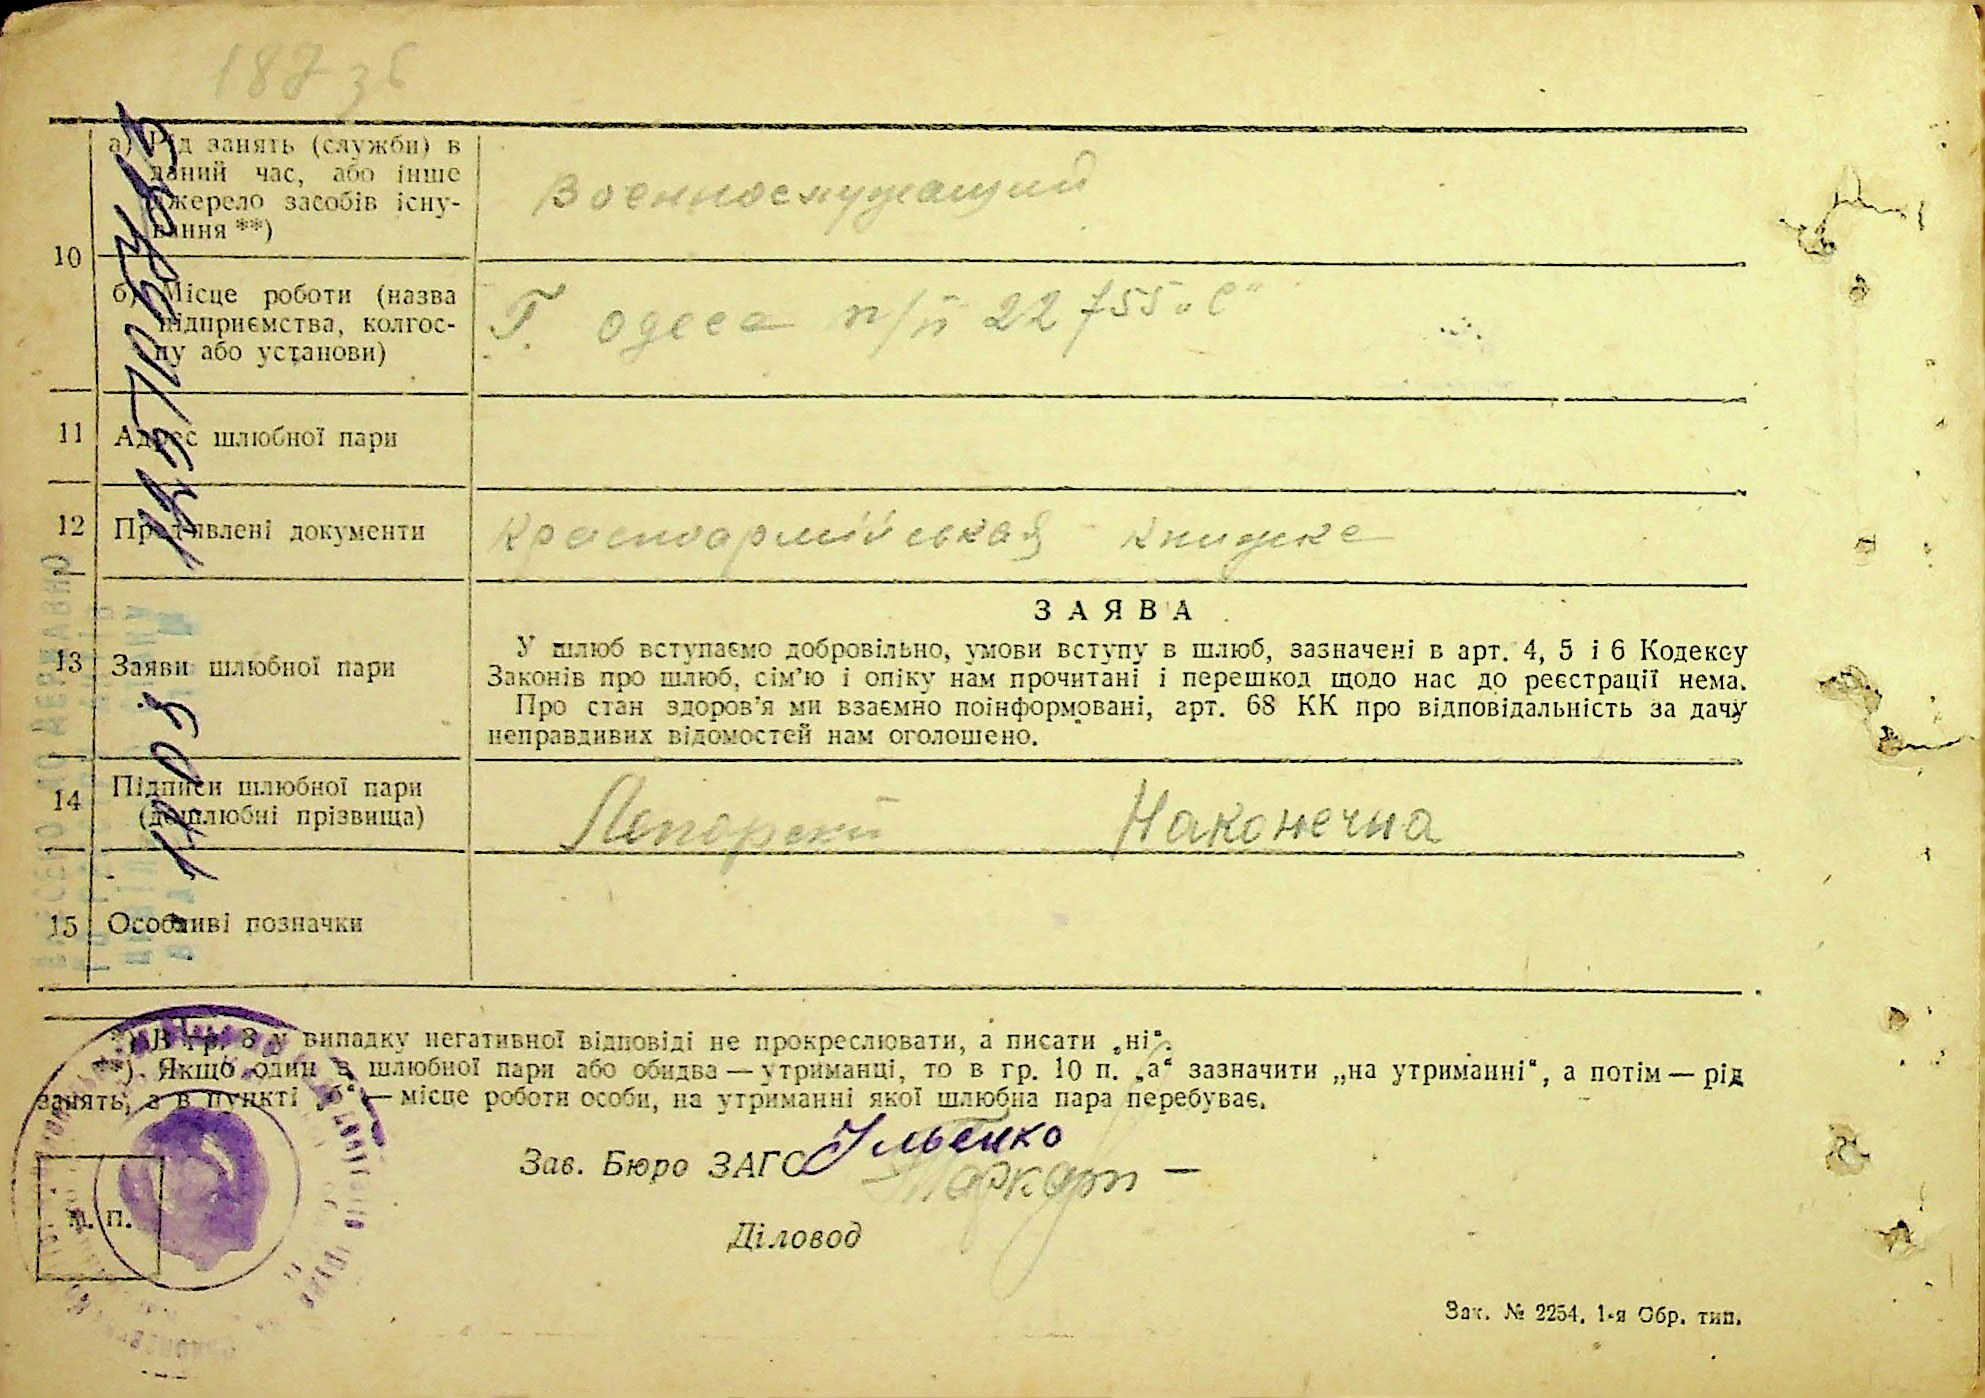 187 зб
а) Рід занять (служби) в
даний час, або інше
джерело засобів існу-
вання **)
Военнослужащий
10
б) Місце роботи (назва
підприємства, колгос-
пу або установи)
Г. Одеса п/п 22755 „С"
11 Адрес шлюбної пари
12 Пред'явлені документи
Красноармійская книжка
13 Заяви шлюбної пари
ЗАЯВА
У шлюб вступаємо добровільно, умови вступу в шлюб, зазначені в арт. 4, 5 і 6 Кодексу
Законів про шлюб, сім'ю і опіку нам прочитані і перешкод щодо нас до реєстрації нема.
Про стан здоров'я ми взаємно поінформовані, арт. 68 КК про відповідальність за дачу
неправдивих відомостей нам оголошено.
14 Підписи шлюбної пари
(дошлюбні прізвища)
Наконечна
15 Особливі позначки
*) В гр. 8 у випадку негативної відповіді не прокреслювати, а писати „ні".
**) Якщо один з шлюбної пари або обидва — утриманці, то в гр. 10 п. „а" зазначити „на утриманні", а потім — рід
занять, а в пункті „б" — місце роботи особи, на утриманні якої шлюбна пара перебуває.
Зав. Бюро ЗАГС
Діловод
М. П.
Зак. № 2254. 1-я Обр. тип.